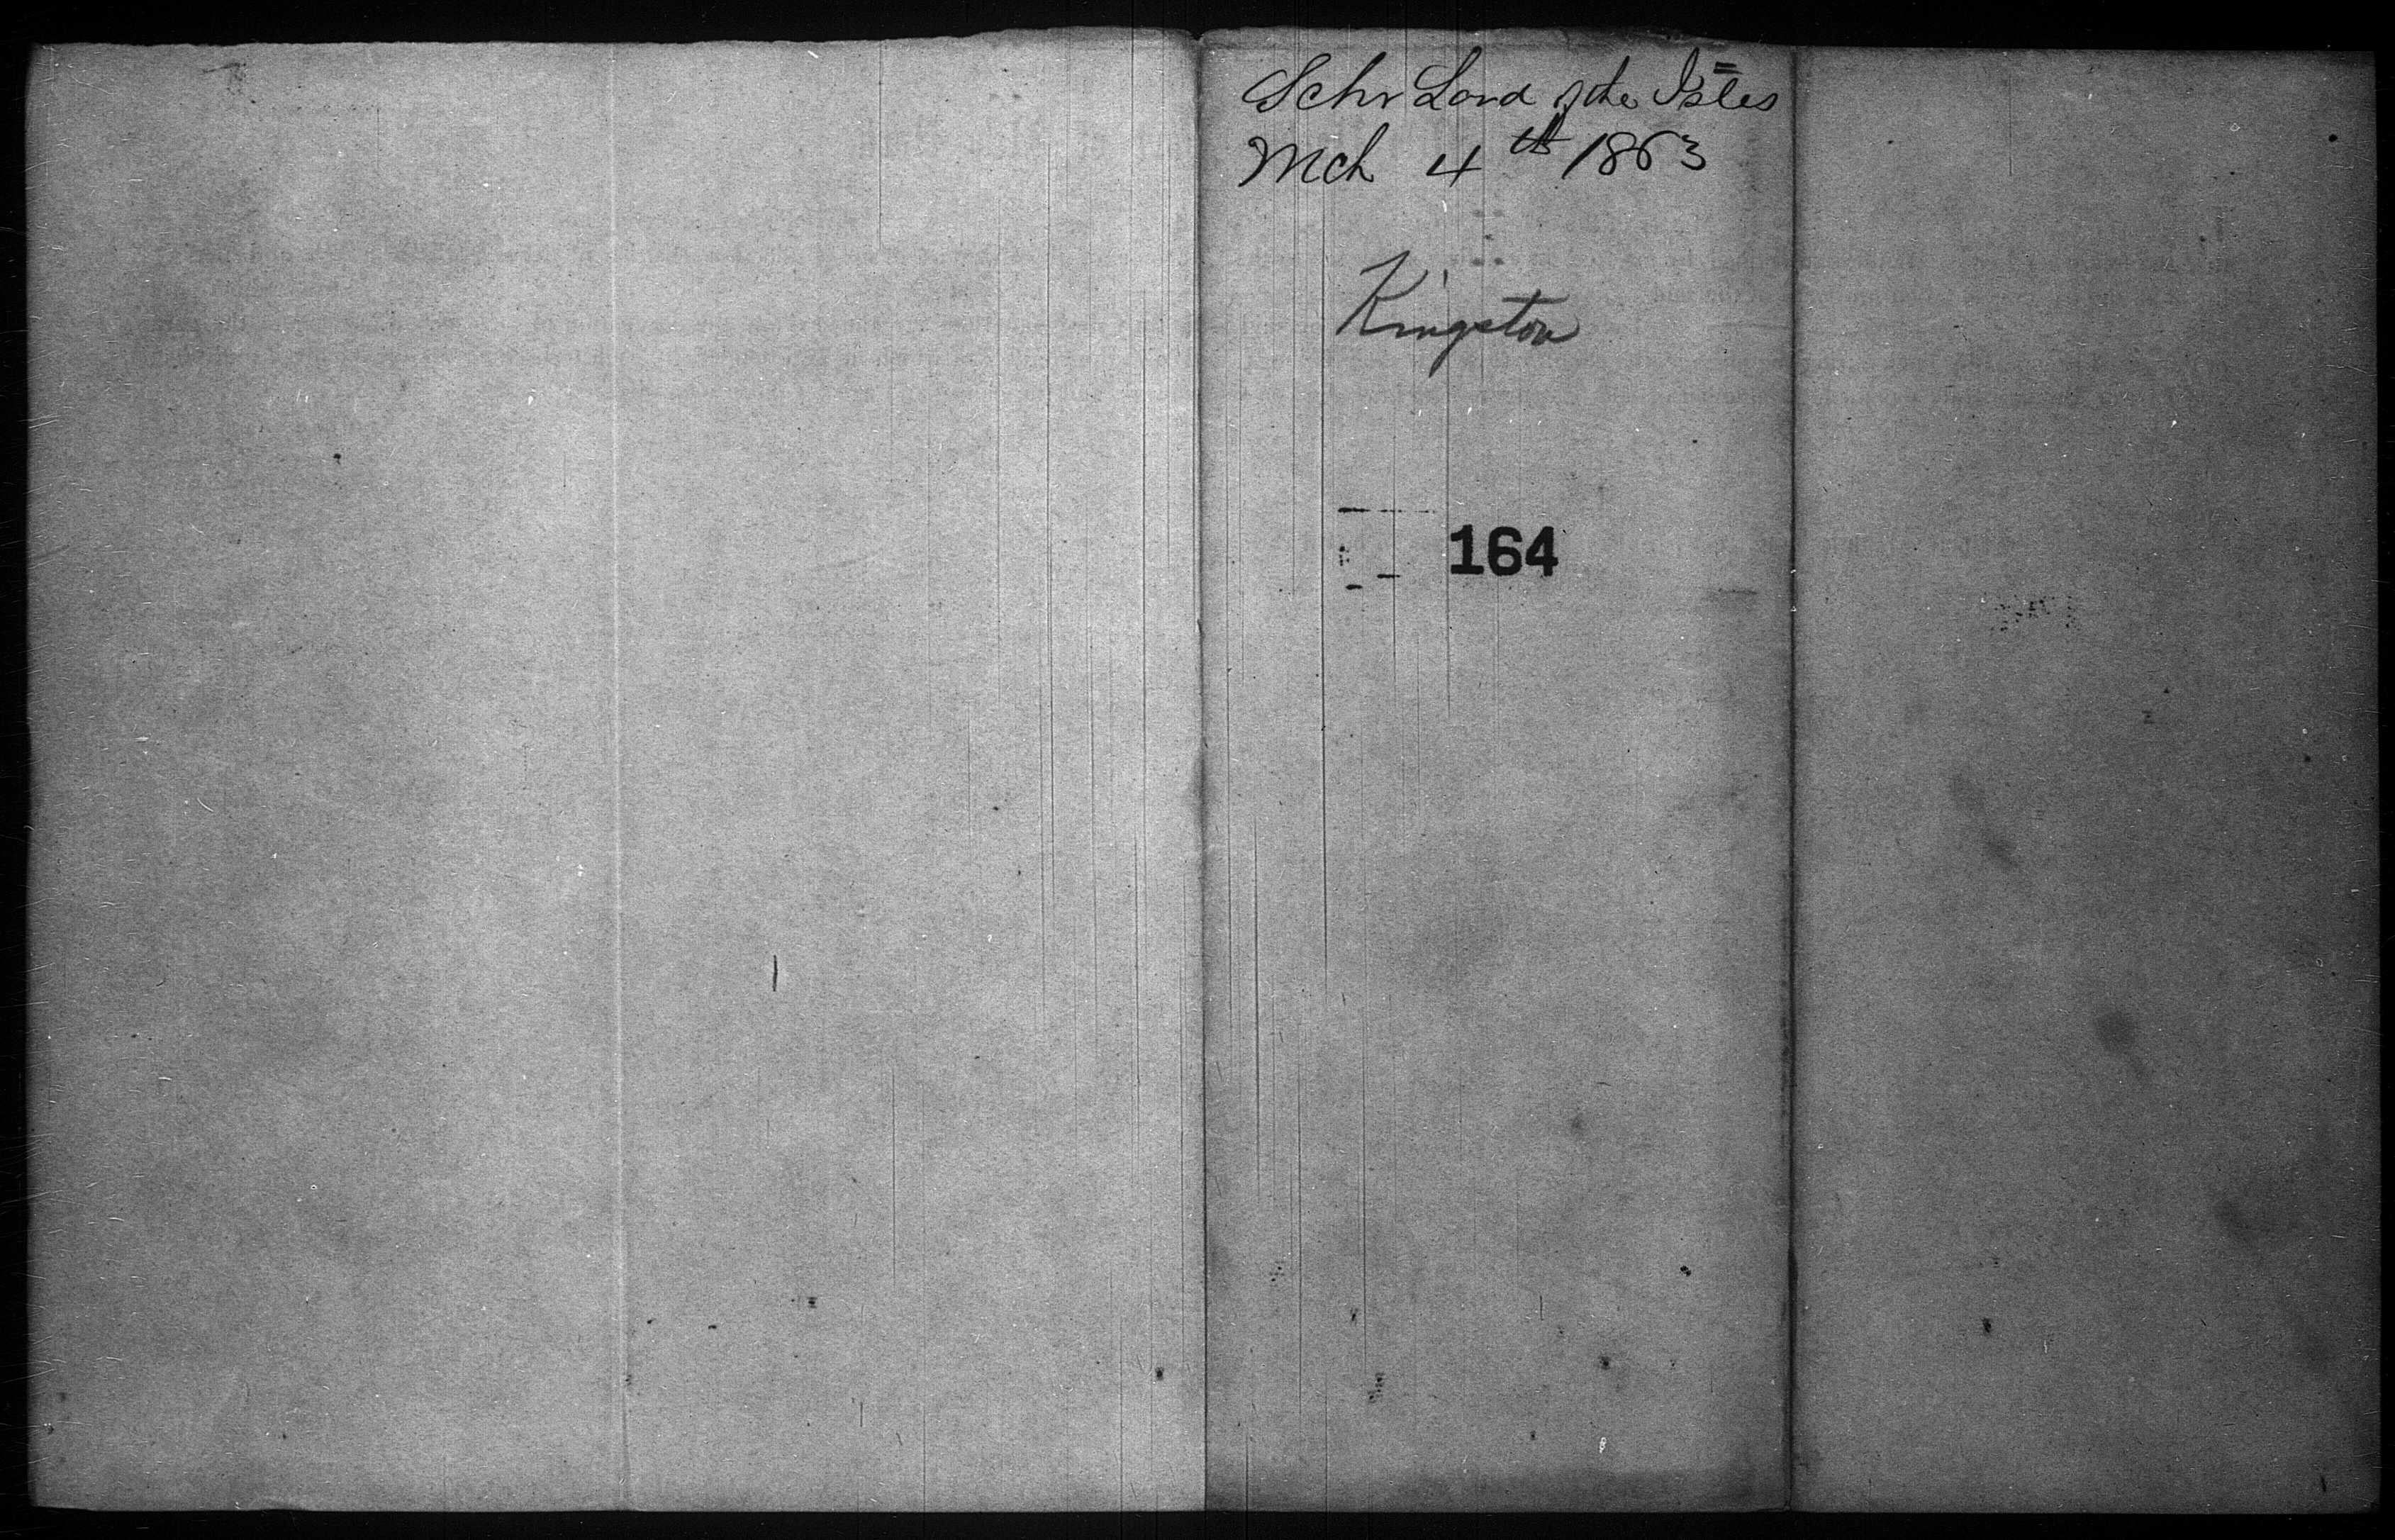 Schr Lord of the Isles
Mch 4th 1863
Kingston
164